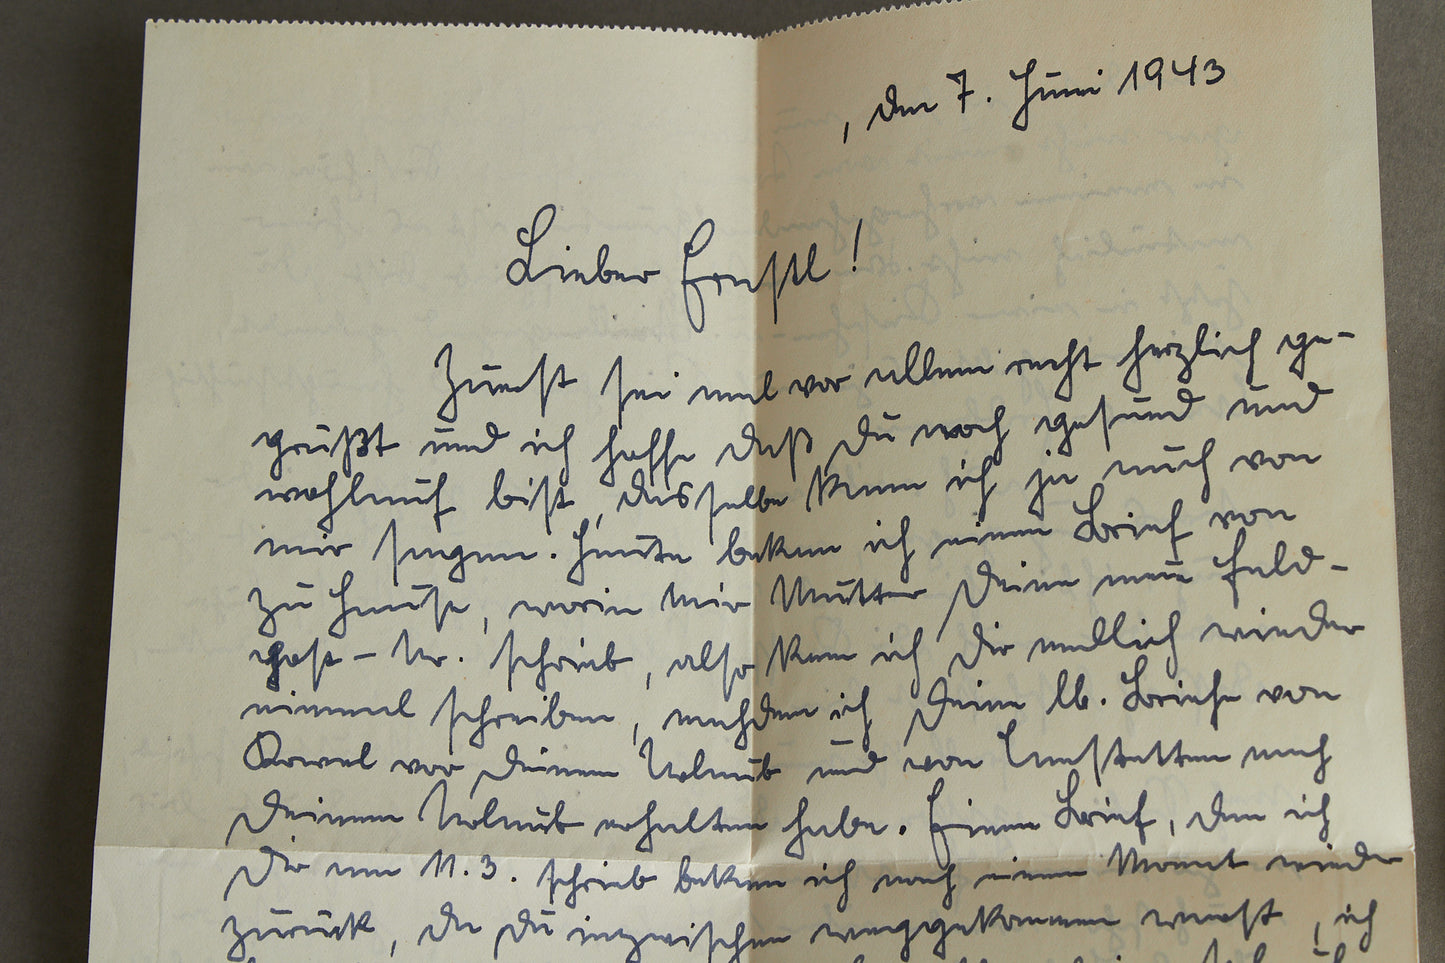 , den 7. Juni 1943
Lieber Ernstl!
Zuerst sei mal vor allem recht herzlich ge-
grüßt und ich hoffe daß Du noch gesund und
wohlauf bist, dasselbe kann ich ja auch von
mir sagen. Heute bekam ich einen Brief von
zu Hause, worin mir Mutter Deine neue Feld-
post-Nr. schrieb, also kann ich Dir endlich wieder
einmal schreiben, nachdem ich Deine lb. Briefe von
Kowel vor Deinem Urlaub und von nach
Deinem Urlaub erhalten habe. Einen Brief, den ich
Dir am 11.3. schrieb bekam ich nach einem Monat wieder
zurück, da Du inzwischen weggekommen warst, ich